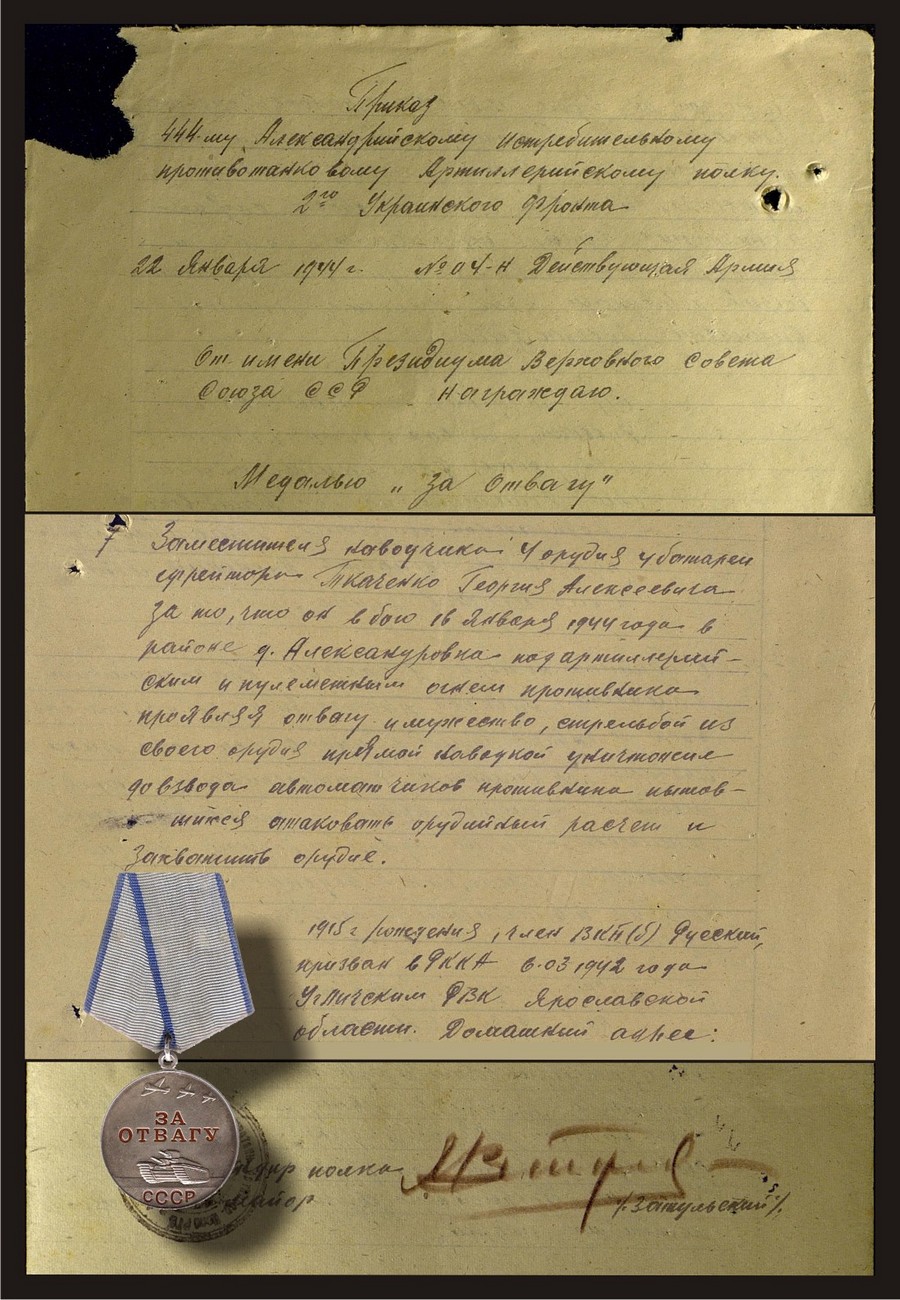 Приказ
444-му Александрийскому истребительному
противотанковому Артиллерийскому полку.
2го Украинского Фронта
22 Января 1944 г. № 04-Н Действующая Армия
От имени Президиума Верховного Совета
Союза ССР награждаю.
Медалью „За Отвагу"
7 Заместителя наводчика 4 орудия 4 батареи
ефрейтора Ткаченко Георгия Алексеевича
за то, что он в бою 16 Января 1944 года в
районе д. Александровка под артиллерий-
ским и пулеметным огнем противника
проявляя отвагу и мужество, стрельбой из
своего орудия прямой наводкой уничтожил
до взвода автоматчиков противника пытав-
шийся атаковать орудийный расчет и
захватить орудие.
1915 г рождения, член ВКП(б) Русский,
призван в РККА 6.03 1942 года
Угличским РВК Ярославской
области. Домашний адрес:
ЗА
ОТВАГУ
СССР
полка
майор
/Затульский/.